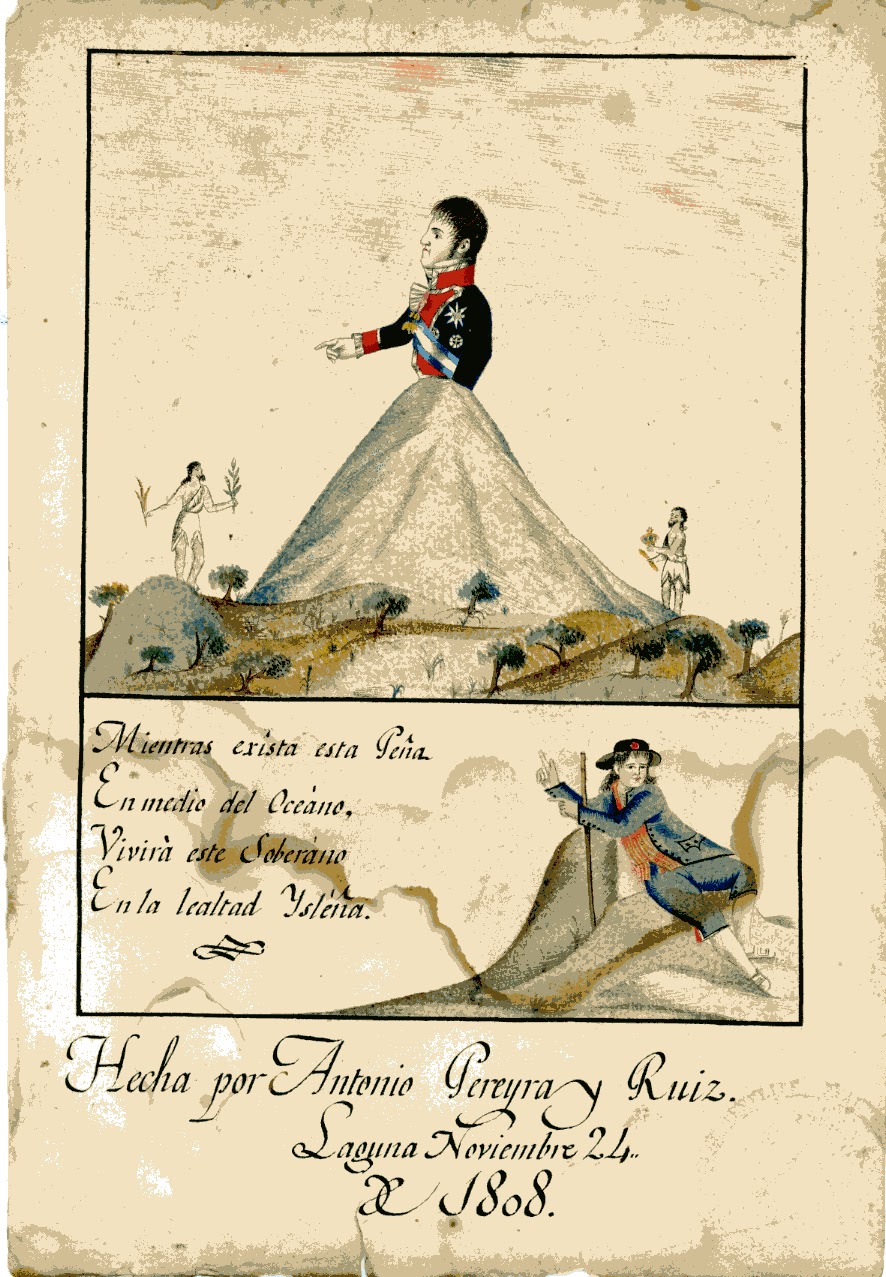 Mientras exîsta esta Peña
En medio del Oceáno,
Vivirà este Soberáno
En la lealtad Ysleña.
Hecha por Antonio Pereyra y Ruiz.
Laguna Noviembre 24..
de 1808.